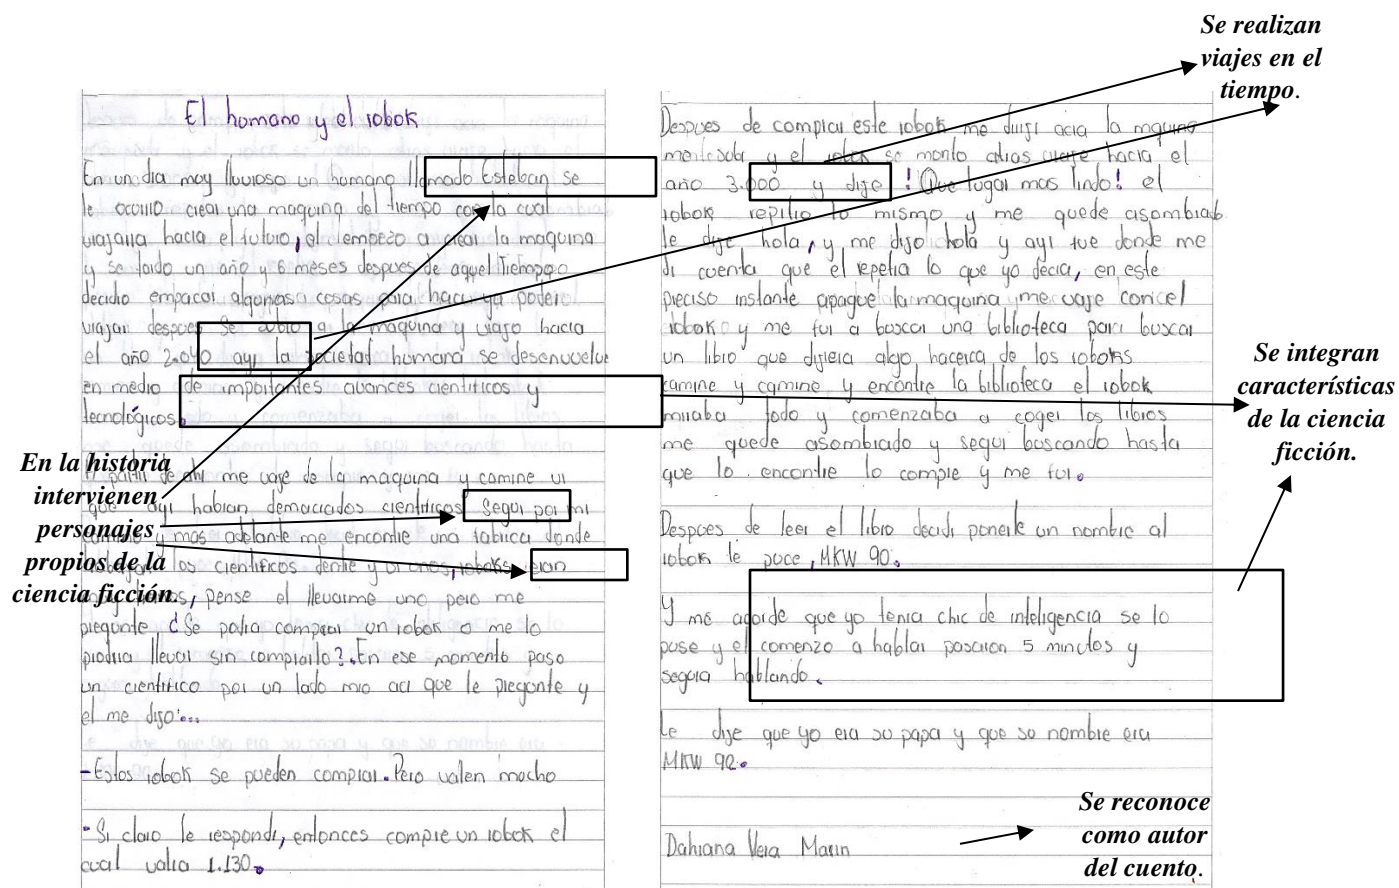 El humano y el robok
En un dia muy lluvioso un humano llamado Esteban se
le ocurrio crear una maquina del tiempo con la cual
viajaria hacia el futuro, el empezo a crear la maquina
y se tardo un año y 6 meses despues de aquel tiempo
decidio empacar algunas cosas para haci ya poder
viajar despues se subio a la maquina y viajo hacia
el año 2.040 ayi la sociedad humana se desenvuelve
en medio de importantes avances cientificos y
tecnológicos.
A partir de ahi me vaje de la maquina y camine vi
que ayi habian demaciados cientificos segui por mi
camino y mas adelante me encontre una fabrica donde
los cientificos dentre y vi unos, roboks eran
, pense el llevarme uno pero me
pregunte ¿Se podia comprar un robok o me lo
prodria llevar sin comprarlo?. En ese momento paso
un cientifico por un lado mio aci que le pregunte y
el me dijo:...
- Estos robok se pueden comprar. Pero valen mucho
- Si claro le respondi, entonces compre un robok el
cual valia 1.130.
Despues de comprar este robok me diriji acia la maquina
me subi y el robok se monto atras viaje hacia el
año 3.000 y dije ! Que lugar mas lindo! el
robok repitio lo mismo y me quede asombrado
le dije hola, y me dijo hola y ayi fue donde me
di cuenta que el repetia lo que yo decia, en este
preciso instante apague la maquina y me vaje con el
robok y me fui a buscar una biblioteca para buscar
un libro que dijera algo hacerca de los roboks
camine y camine y encontre la biblioteca el robok
miraba todo y comenzaba a coger los libros
me quede asombrado y segui buscando hasta
que lo encontre lo compre y me fui.
Despues de leer el libro decidi ponerle un nombre al
robok le puce, MKW 90.
Y me acorde que yo tenia chic de inteligencia se lo
puse y el comenzo a hablar pasaron 5 minutos y
seguia hablando.
le dije que yo era su papa y que su nombre era
MKW 90.
Dahiana Vera Marin
Se realizan
viajes en el
tiempo.
Se integran
características
de la ciencia
ficción.
En la historia
intervienen
personajes
propios de la
ciencia ficción.
Se reconoce
como autor
del cuento.